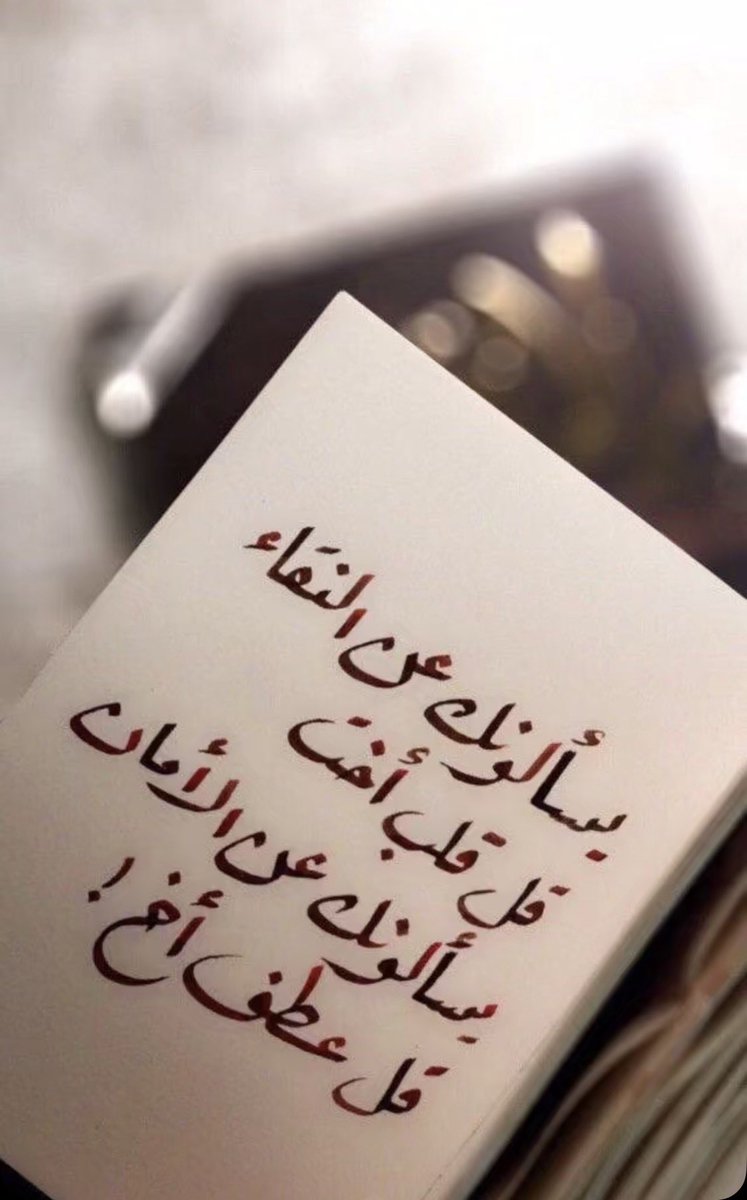 يسألونك عن النقاء
قل قلب أخت
يسألونك عن الأمان
قل عطف أخ !